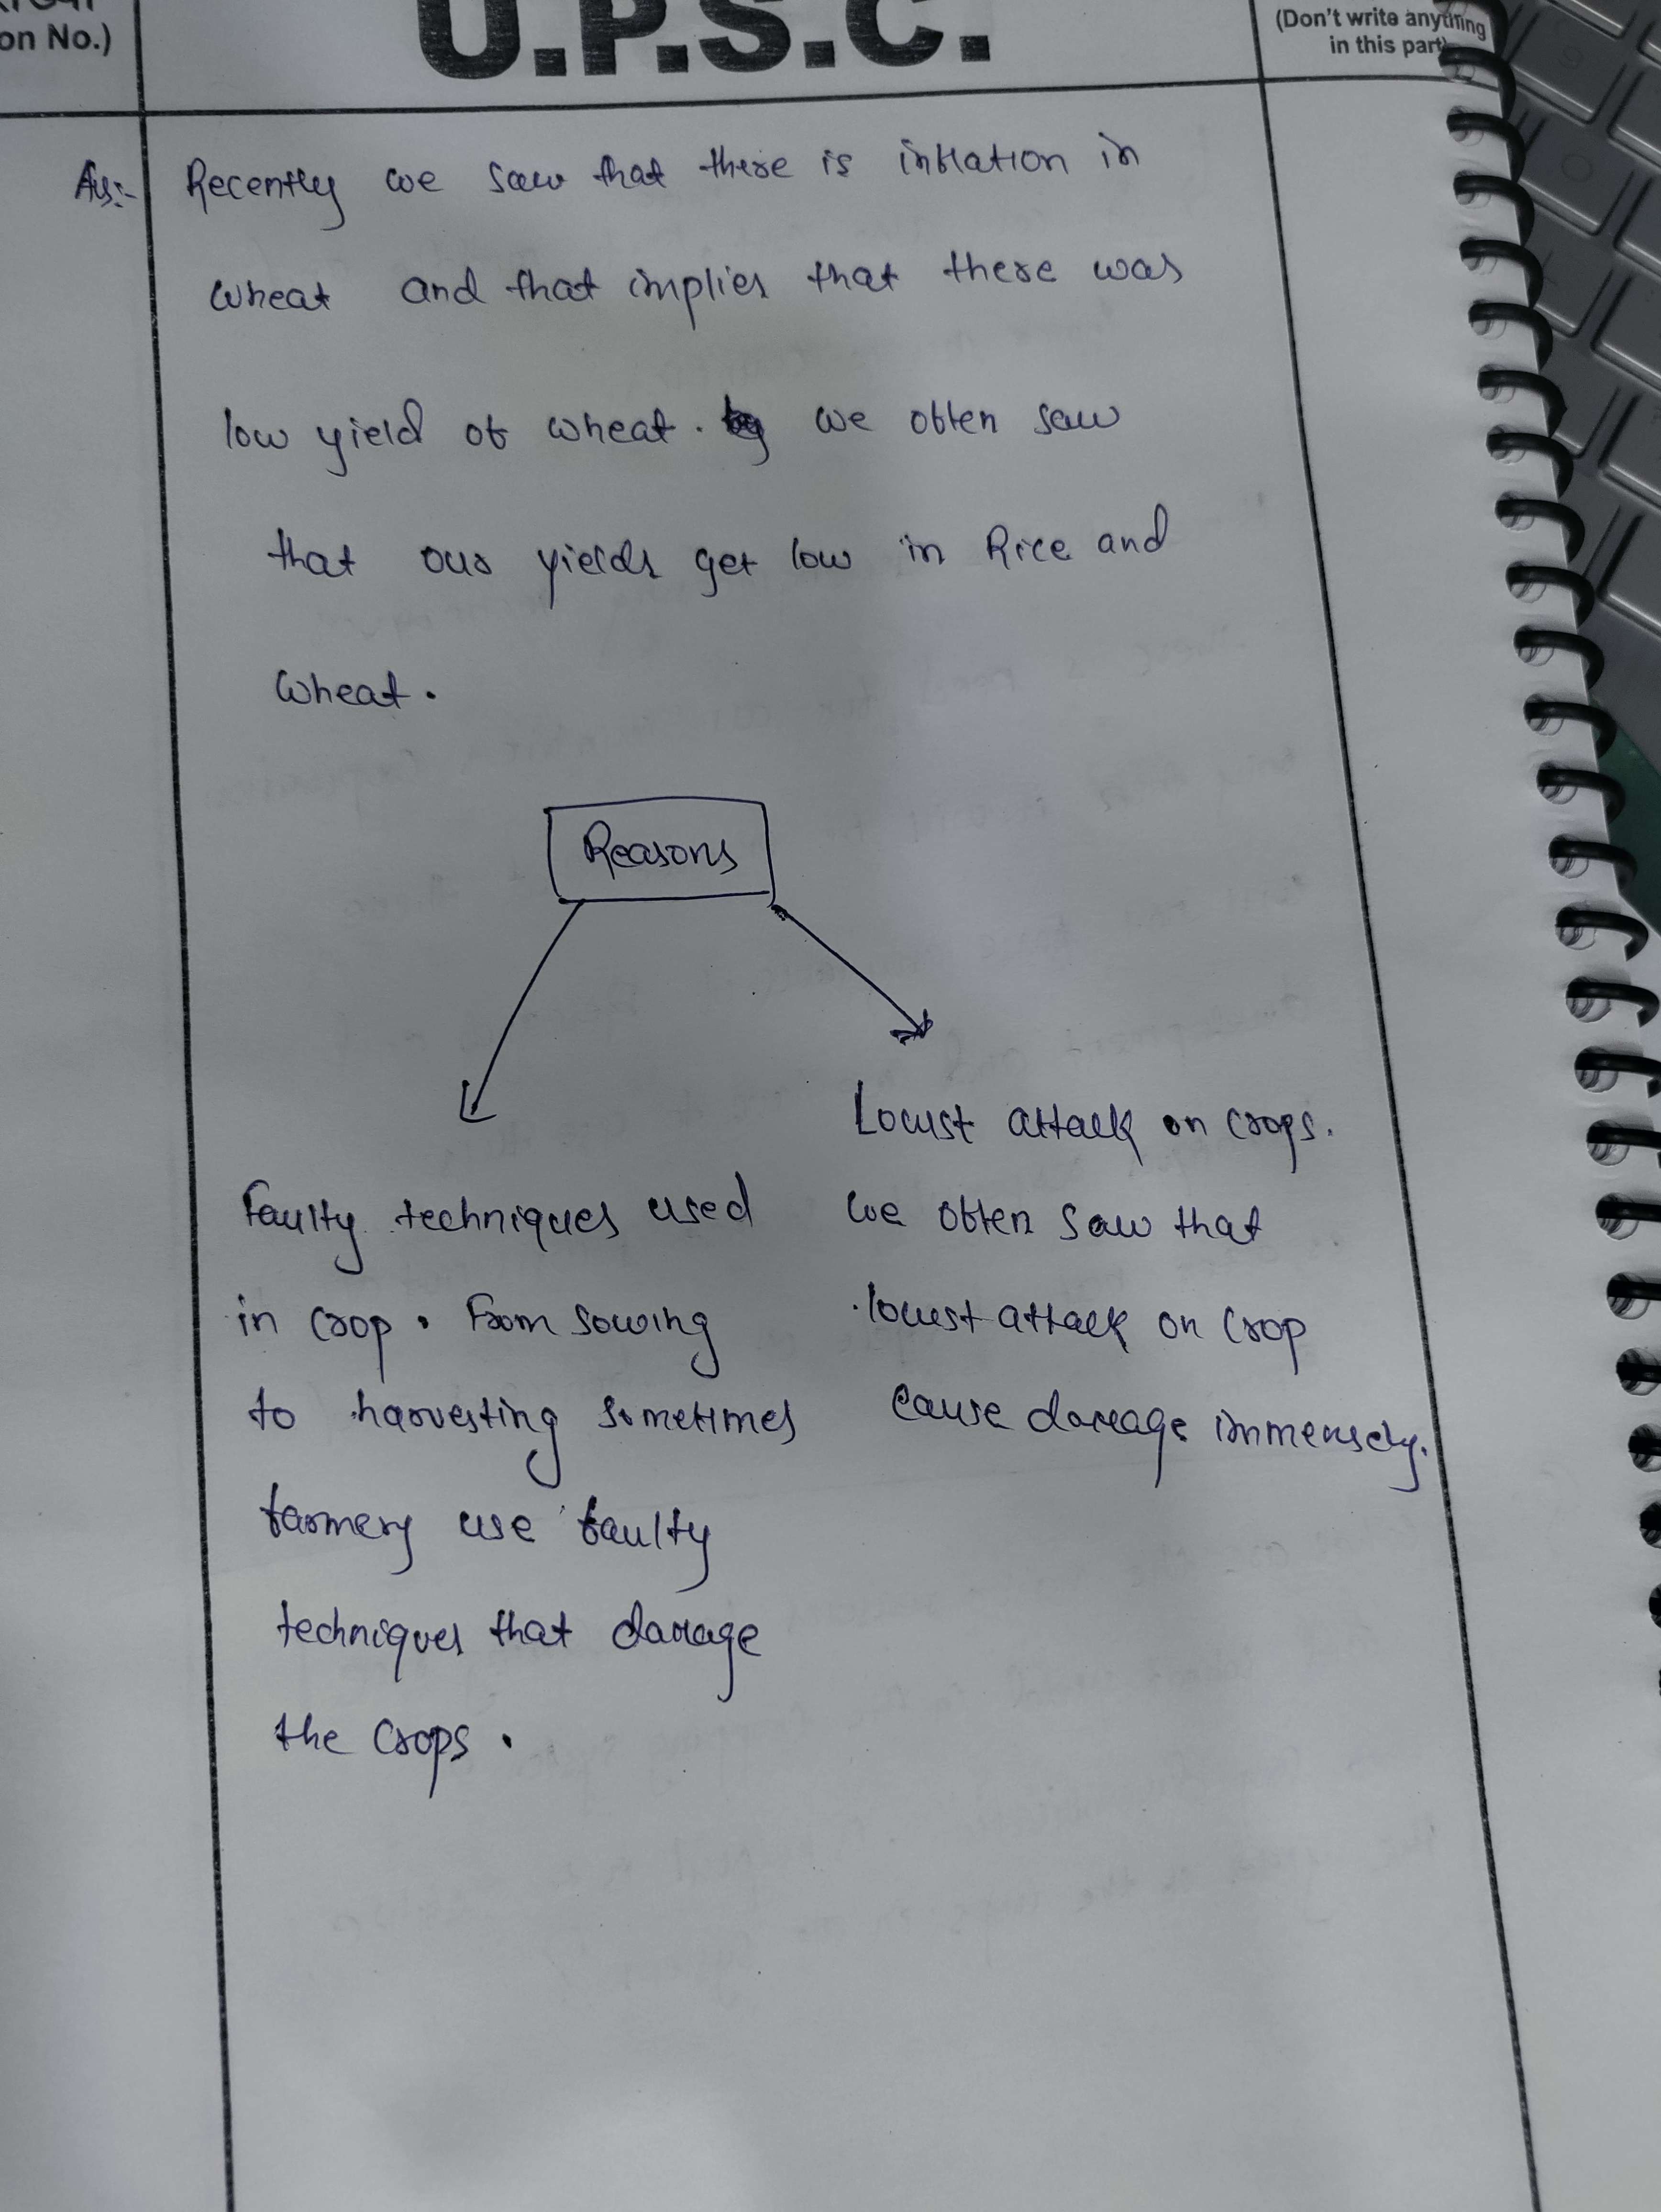 on No.)
U.P.S.C.
(Don't write anything
in this part)
Ans:-
Recently we saw that there is inflation in
wheat and that implies that there was
low yield of wheat. we often saw
that our yields get low in Rice and
wheat.
Reasons
Faulty techniques used
in crop. From sowing
to harvesting sometimes
farmers use faulty
techniques that damage
the crops.
Locust attack on crops.
we often saw that
locust attack on crop
cause damage immensely.